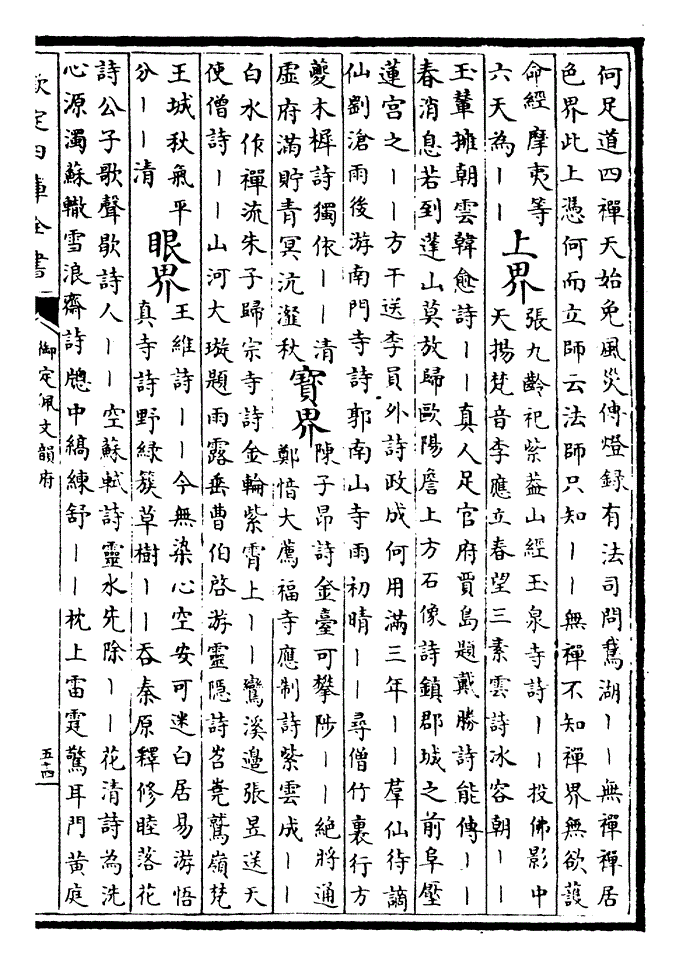 何足道四禪天始免風災傳燈録有法司問鵞湖丨丨無禪禪居
色界此上憑何而立師云法師只知丨丨無禪不知禪界無欲䕶
命經摩夷等
六天為丨丨
上界
張九齡祀紫葢山經玉泉寺詩丨丨投佛影中
天揚梵音李應立春望三素雲詩冰容朝丨丨
玉輦擁朝雲韓愈詩丨丨真人足官府賈島題戴勝詩能傳丨丨
春消息若到蓬山莫放歸歐陽詹上方石像詩鎮郡城之前阜壓
蓮宫之丨丨方干送李員外詩政成何用滿三年丨丨羣仙待謫
仙劉滄雨後游南門寺詩郭南山寺雨初晴丨丨尋僧竹裏行方
夔木樨詩獨依丨丨清
虚府滿貯青冥沆瀣秋
寶界
陳子昂詩金臺可攀陟丨丨絶將通
鄭愔大薦福寺應制詩紫雲成丨丨
白水作禪流朱子歸宗寺詩金輪紫霄上丨丨鸞溪邉張昱送天
使僧詩丨丨山河大璇題雨露垂曹伯啓游靈隠詩岧嶤鷲嶺梵
王城秋氣平
分丨丨清
眼界
王維詩丨丨今無染心空安可迷白居易游悟
真寺詩野緑簇草樹丨丨吞秦原釋修睦落花
詩公子歌聲歇詩人丨丨空蘇軾詩靈水先除丨丨花清詩為洗
心源濁蘇轍雪浪齋詩牕中縞練舒丨丨枕上雷霆驚耳門黄庭
欽定四庫全書
御定佩文韻府
五十四